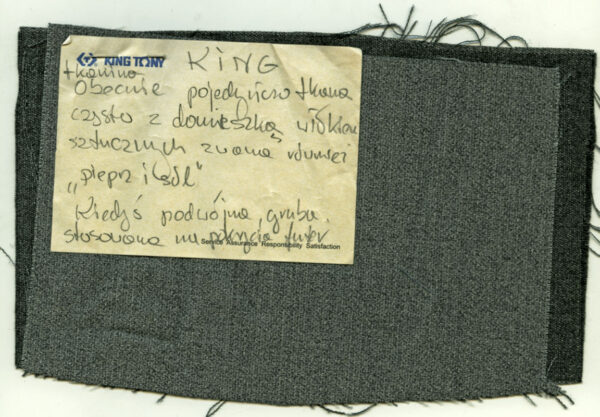 KING TONY KING
tkanina
Obecnie pojedyńczo tkana
często z domieszką włókien
sztucznych zwana również
„pieprz i sól"
Kiedyś podwójna, gruba.
stosowana na pokrycia futer
Service Assurance Responsibility Satisfaction